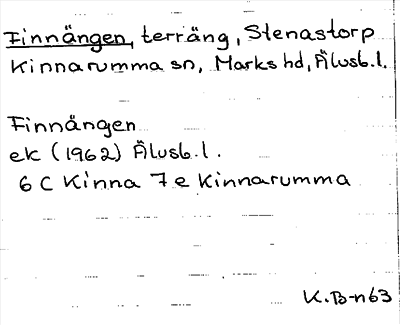 Finnängen, terräng, Stenastorp
Kinnarumma sn, Marks hd, Älvsb.l.
Finnängen
ek (1962) Älvsb.l.
6 C Kinna 7 e Kinnarumma
K.B-n63